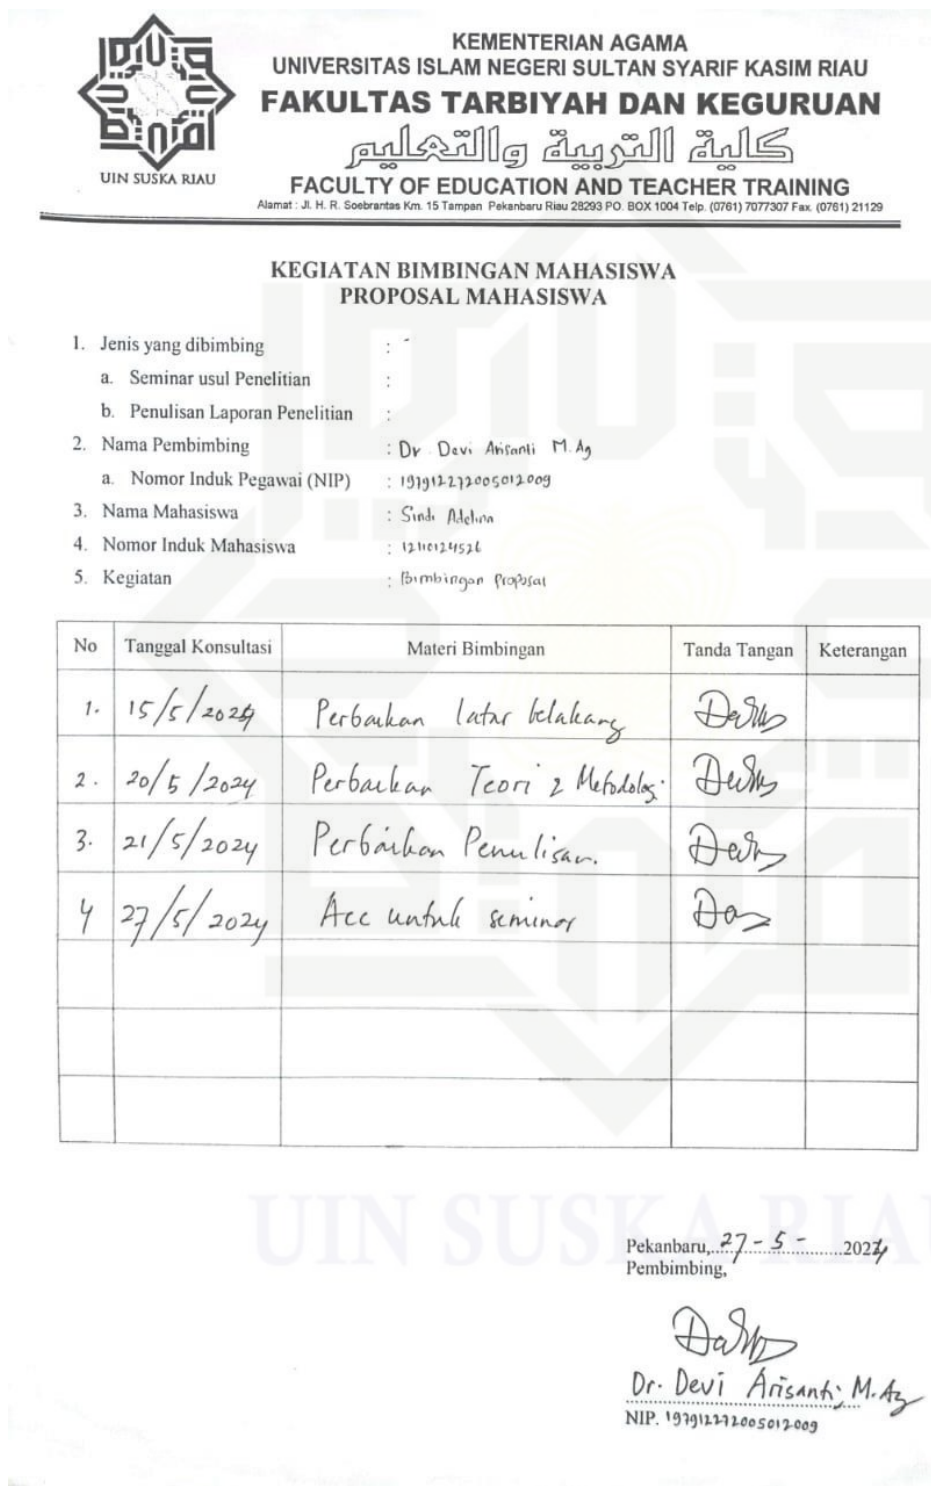 KEMENTERIAN AGAMA
UNIVERSITAS ISLAM NEGERI SULTAN SYARIF KASIM RIAU
FAKULTAS TARBIYAH DAN KEGURUAN
كلية التربية والتعليم
FACULTY OF EDUCATION AND TEACHER TRAINING
Alamat : Jl. H. R. Soebrantas Km. 15 Tampan Pekanbaru Riau 28293 PO. BOX 1004 Telp. (0761) 7077307 Fax. (0761) 21129
UIN SUSKA RIAU
KEGIATAN BIMBINGAN MAHASISWA
PROPOSAL MAHASISWA
1. Jenis yang dibimbing : -
a. Seminar usul Penelitian :
b. Penulisan Laporan Penelitian :
2. Nama Pembimbing : Dr. Devi Arisanti M.Ag
a. Nomor Induk Pegawai (NIP) : 197912272005012009
3. Nama Mahasiswa : Sindi Adelina
4. Nomor Induk Mahasiswa : 12110124526
5. Kegiatan : Bimbingan Proposal
No Tanggal Konsultasi Materi Bimbingan Tanda Tangan Keterangan
1. 15/5/2024 Perbaikan latar belakang
2. 20/5/2024 Perbaikan Teori & Metodologi
3. 21/5/2024 Perbaikan Penulisan.
4 27/5/2024 Acc untuk seminar
UIN SUSKA RIA
Pekanbaru, 27-5-2024
Pembimbing,
Dr. Devi Arisanti, M.Ag
NIP. 197912272005012009